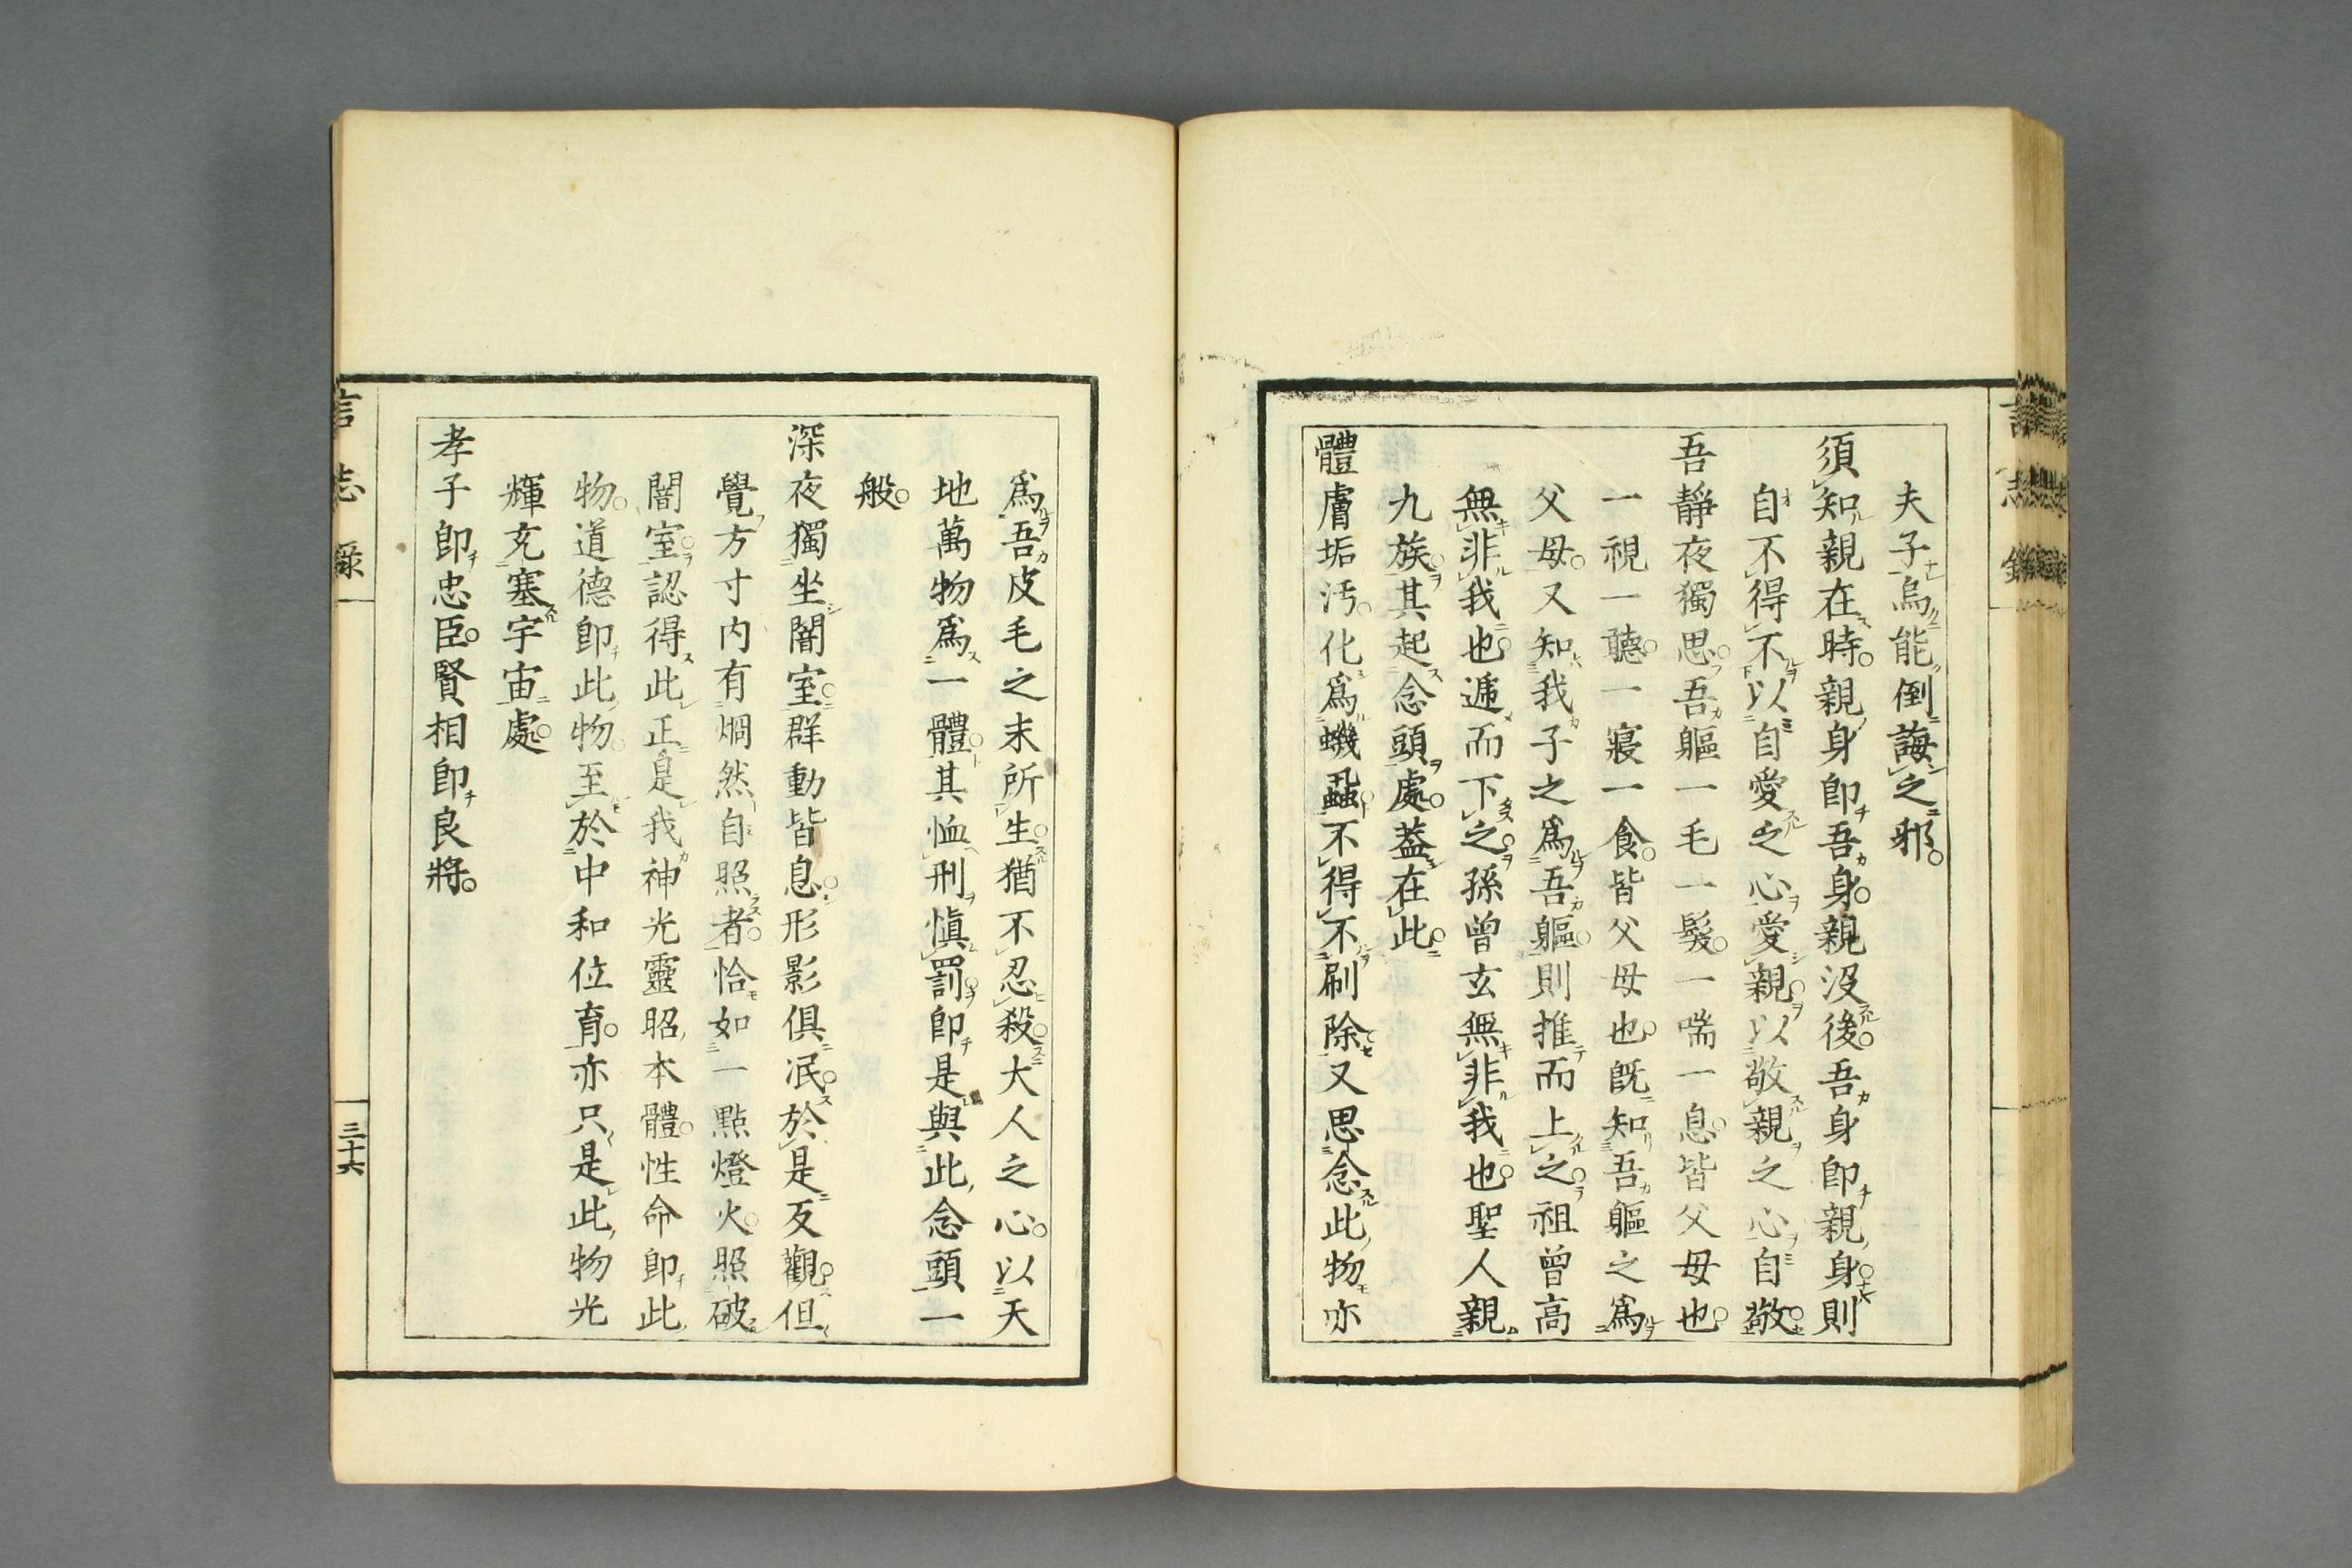 夫子烏能倒誨之邪。
須知親在時。親身即吾身。親沒後。吾身即親身。則
自不得不以自愛之心愛親。以敬親之心自敬。
吾靜夜獨思。吾軀一毛一髮。一喘一息。皆父母也。
一視一聽。一寢一食。皆父母也。既知吾軀之爲
父母。又知我子之爲吾軀。則推而上之。祖曾高
無非我也。遞而下之。孫曾玄無非我也。聖人親
九族。其起念頭處。蓋在此。
體膚垢汚。化爲蟣蝨。不得不刷除。又思念此物亦
爲吾皮毛之末所生。猶不忍殺。大人之心。以天
地萬物爲一體。其恤刑愼罰。即是與此念頭一
般。
深夜獨坐闇室。群動皆息。形影俱泯。於是反觀。但
覺方寸内有烱然自照者。恰如一點燈火。照破
闇室。認得此正是我神光靈昭本體。性命即此
物。道德即此物。至於中和位育。亦只是此物光
輝充塞宇宙處。
孝子即忠臣。賢相即良將。
言志錄
三十六